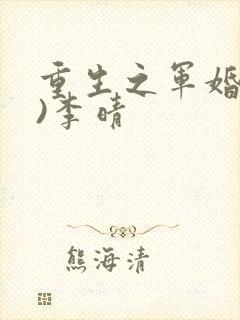 重生之军婚
)李晴
熊海清